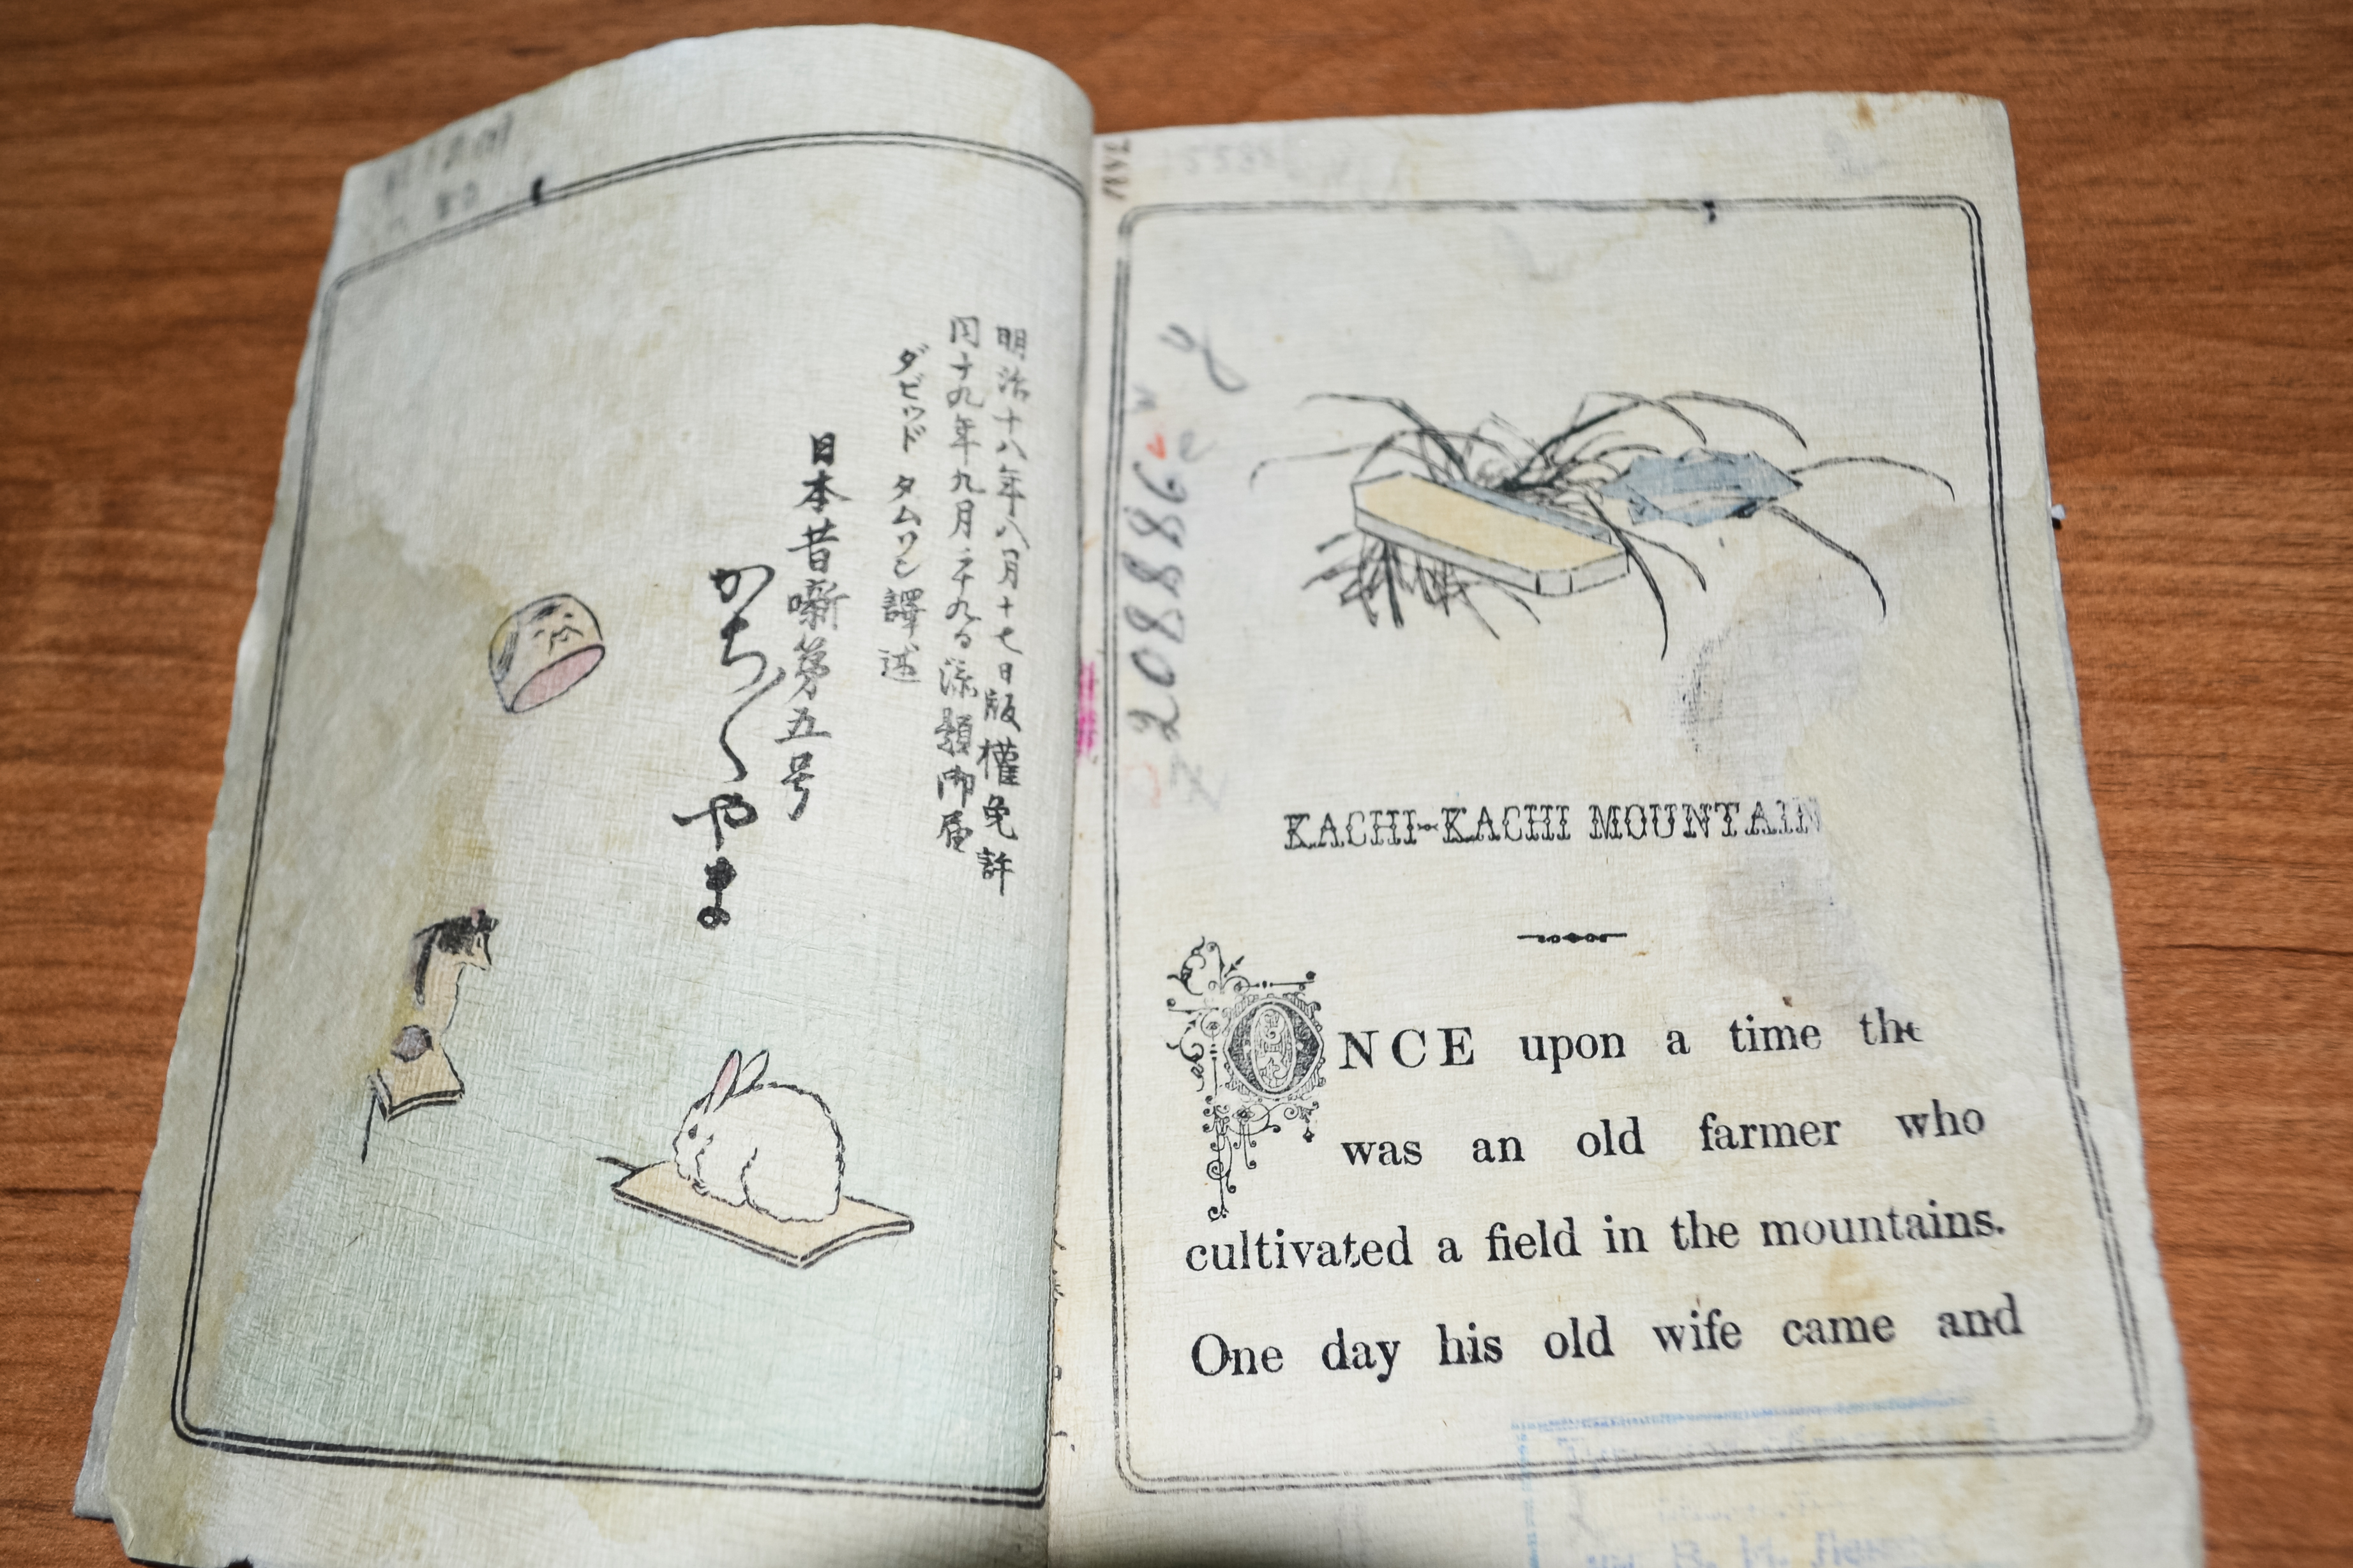 明治十八年八月十七日版權免許
同十九年九月二十九日添題御届
ダビッド タムソン 譯述
日本昔噺第五号
かち〱やま
2088862
KACHI-KACHI MOUNTAIN
ONCE upon a time the
was an old farmer who
cultivated a field in the mountains.
One day his old wife came and